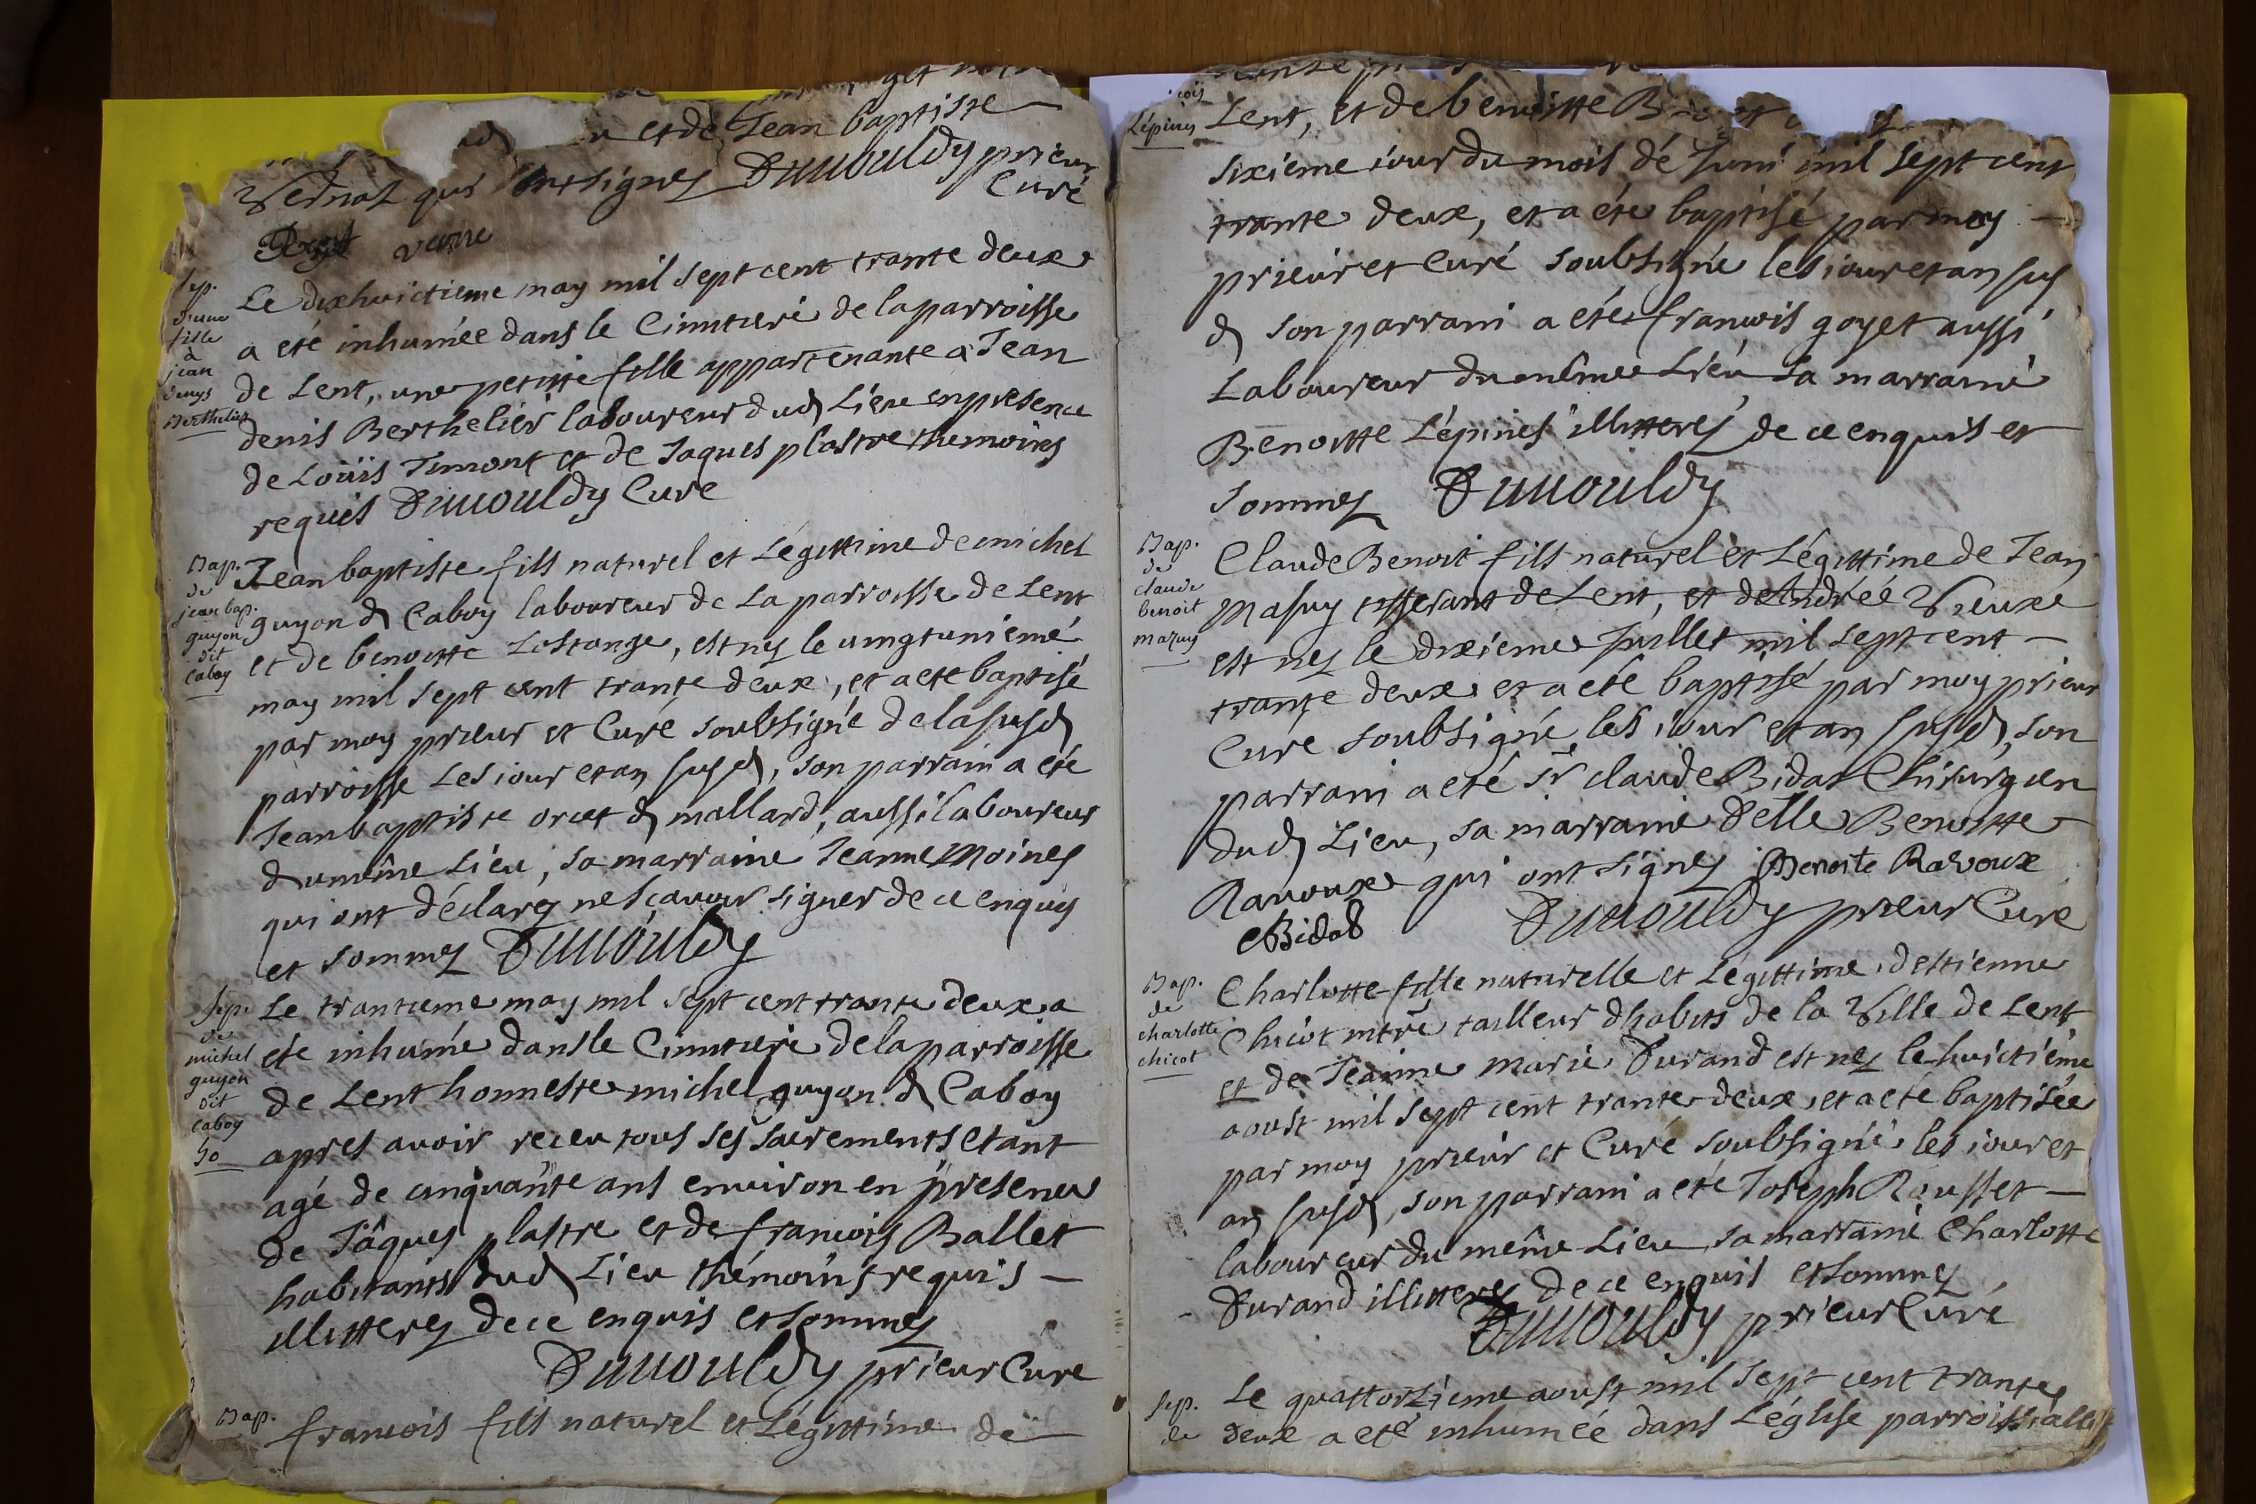 et de Jean baptiste
Vernat qui ont signez Dumouldy prieur
Curé
Sep.
d'une
fille
à
jean
denys
Berthelier
Le dixhuictieme may mil sept cent trante deux
a eté inhumée dans le Cimetiere de la parroisse
de Lent, une petitte fille appartenante a Jean
denis Berthelier laboureur dud Lieu en presence
de Loüis Timont et de Jaques plastre themoins
requis Dumouldy Curé
Bap.
de
jean bap.
guyon
dit
caboy
Jean baptiste fils naturel et Légittime de michel
guyon d Caboy laboureur de La parroisse de Lent
et de benoitte Lestange, est nez le vingtunieme
may mil sept cent trante deux, et a eté baptisé
par moy prieur et Curé soubsigné de la susd
parroisse Les iour et an susd, son parrain a eté
Jean baptiste orcet d mallard, aussi laboureur
du même Lieu, sa marraine Jeanne Moines
qui ont déclarez ne sçavoir signer de ce enquis
et sommez Dumouldy
Sep.
de
michel
guyon
dit
caboy
50
Le trantieme may mil sept cent trante deux a
eté inhumé dans le Cimetiere de la parroisse
de Lent honneste michel guyon d Caboy
apres avoir receu tous ses sacrements etant
agé de cinquante ans environ en presence
de Jâques plastre et de francois Ballet
habitants dud Lieu thémoins requis
illitterez de ce enquis et sommez
Dumouldy prieur Curé
Bap.
francois fils naturel et Légittime de
Lépines
Lent, et de benoitte
sixieme iour du mois dé Juin mil sept cent
trante deux, et a été baptisé par moy
prieur et Curé soubsigné les iour et an sus
d son parrain a eté francois goyet aussi
Laboureur du même Lieu sa marraine
Benoitte Lépines illitterez de ce enquis et
sommez Dumouldy
Bap.
de
claude
benoit
mazuy
Claude Benoit fils naturel et Légittime de Jean
Masuy tisserant de Lent, et de Andréé Vieux
est nez le dixieme Juillet mil sept cent
trante deux et a eté baptisé par moy prieur
Curé soubsigné les iour et an susd, son
parrain a eté Sr claude Bidat Chirurgien
dud Lieu, sa marraine Delle Benoitte
Ravoux qui ont signez Benoite Ravoux
Bidat Dumouldy prieur Curé
Bap.
de
charlotte
chicot
Charlotte fille naturelle et Légittime d'estienne
Chicot mtre tailleur d'habits de la Ville de Lent
et de Jeanne Marie Durand est nez le huictieme
aoust mil sept cent trante deux, et a eté baptisée
par moy prieur et Curé soubsigné les iour et
an susd, son parrain a eté Joseph Rousset
laboureur du même Lieu sa marraine Charlotte
Durand illitterez de ce enquis et sommez
Dumouldy prieur Curé
Sep.
de
Le quattorzieme aoust mil sept cent trante
deux a eté inhumée dans L'église parroissialle